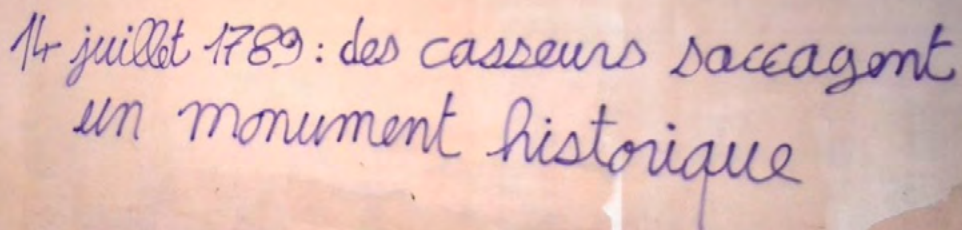 14 juillet 1789 : des casseurs saccagent
un monument historique